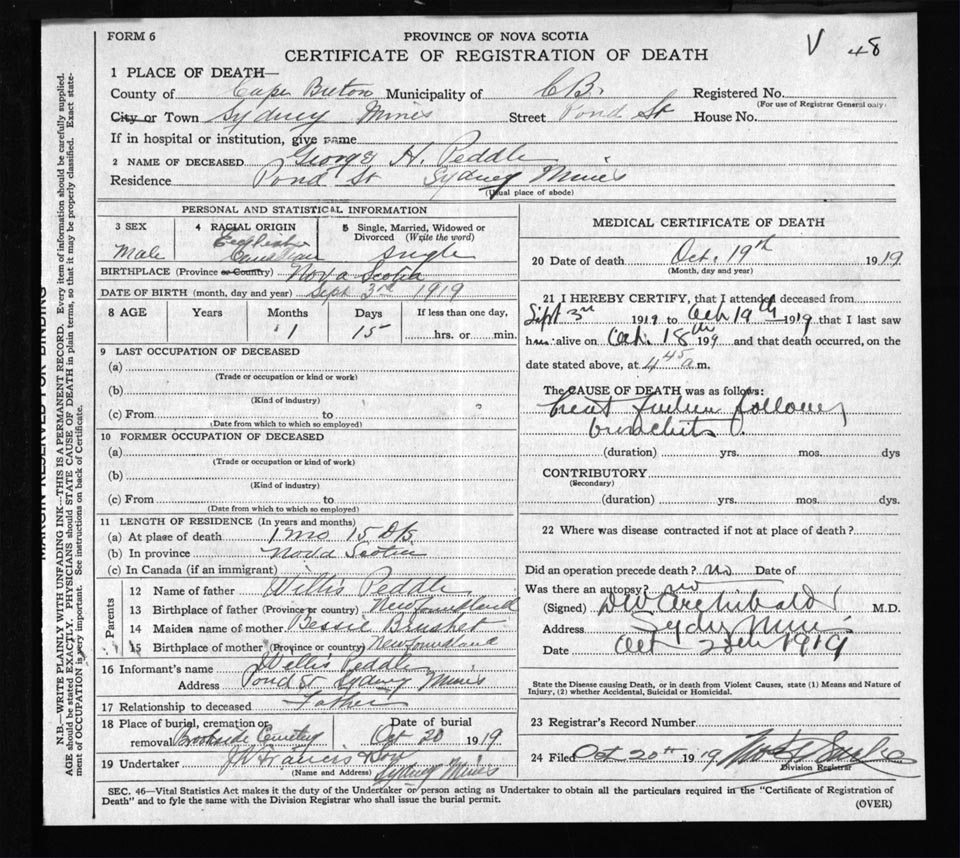 FORM 6
PROVINCE OF NOVA SCOTIA
CERTIFICATE OF REGISTRATION OF DEATH
V 48
1 PLACE OF DEATH—
County of Cape Breton Municipality of C.B. Registered No.
(For use of Registrar General only)
City or Town Sydney Mines Street Pond St House No.
If in hospital or institution, give name
2 NAME OF DECEASED George H. Peddle
Residence Pond St Sydney Mines
(Usual place of abode)
PERSONAL AND STATISTICAL INFORMATION
3 SEX
Male
4 RACIAL ORIGIN
English
5 Single, Married, Widowed or Divorced (Write the word)
Single
BIRTHPLACE (Province or Country) Nova Scotia
DATE OF BIRTH (month, day and year) Sept 3rd 1919
8 AGE Years Months Days If less than one day,
1 15 hrs. or min.
9 LAST OCCUPATION OF DECEASED
(a)
(Trade or occupation or kind or work)
(b)
(Kind of industry)
(c) From to
(Date from which to which so employed)
10 FORMER OCCUPATION OF DECEASED
(a)
(Trade or occupation or kind of work)
(b)
(Kind of industry)
(c) From to
(Date from which to which so employed)
11 LENGTH OF RESIDENCE (In years and months)
(a) At place of death 1 mo 15 Ds
(b) In province Nova Scotia
(c) In Canada (if an immigrant)
Parents
12 Name of father Willis Peddle
13 Birthplace of father (Province or country) Newfoundland
14 Maiden name of mother Bessie
15 Birthplace of mother (Province or country) Newfoundland
16 Informant's name Willis Peddle
Address Pond St Sydney Mines
17 Relationship to deceased Father
18 Place of burial, cremation or removal Brookside Cemetery
Date of burial
Oct 20 1919
19 Undertaker J W Francis
(Name and Address) Sydney Mines
MEDICAL CERTIFICATE OF DEATH
20 Date of death Oct. 19th 1919
(Month, day and year)
21 I HEREBY CERTIFY, that I attended deceased from
Sept 3rd 1919 to Oct 19th 1919 that I last saw
him alive on Oct. 18th 191 and that death occurred, on the
date stated above, at 4 45 a.m.
The CAUSE OF DEATH was as follows:
heart failure following
bronchitis
(duration) yrs. mos. dys
CONTRIBUTORY
(Secondary)
(duration) yrs. mos. dys.
22 Where was disease contracted if not at place of death?
Did an operation precede death? no Date of
Was there an autopsy? no
(Signed) DW Archibald M.D.
Address Sydney Mines
Date Oct 1919
State the Disease causing Death, or in death from Violent Causes, state (1) Means and Nature of
Injury, (2) whether Accidental, Suicidal or Homicidal.
23 Registrar's Record Number
24 Filed Oct 20th 1919
Division Registrar
SEC. 46—Vital Statistics Act makes it the duty of the Undertaker or person acting as Undertaker to obtain all the particulars required in the "Certificate of Registration of
Death" and to fyle the same with the Division Registrar who shall issue the burial permit.
(OVER)
MARGIN RESERVED FOR BINDING
N.B.—WRITE PLAINLY WITH UNFADING INK—THIS IS A PERMANENT RECORD. Every item of information should be carefully supplied.
AGE should be stated EXACTLY. PHYSICIANS should STATE CAUSE OF DEATH in plain terms, so that it may be properly classified. Exact state-
ment of OCCUPATION is very important. See instructions on back of Certificate.